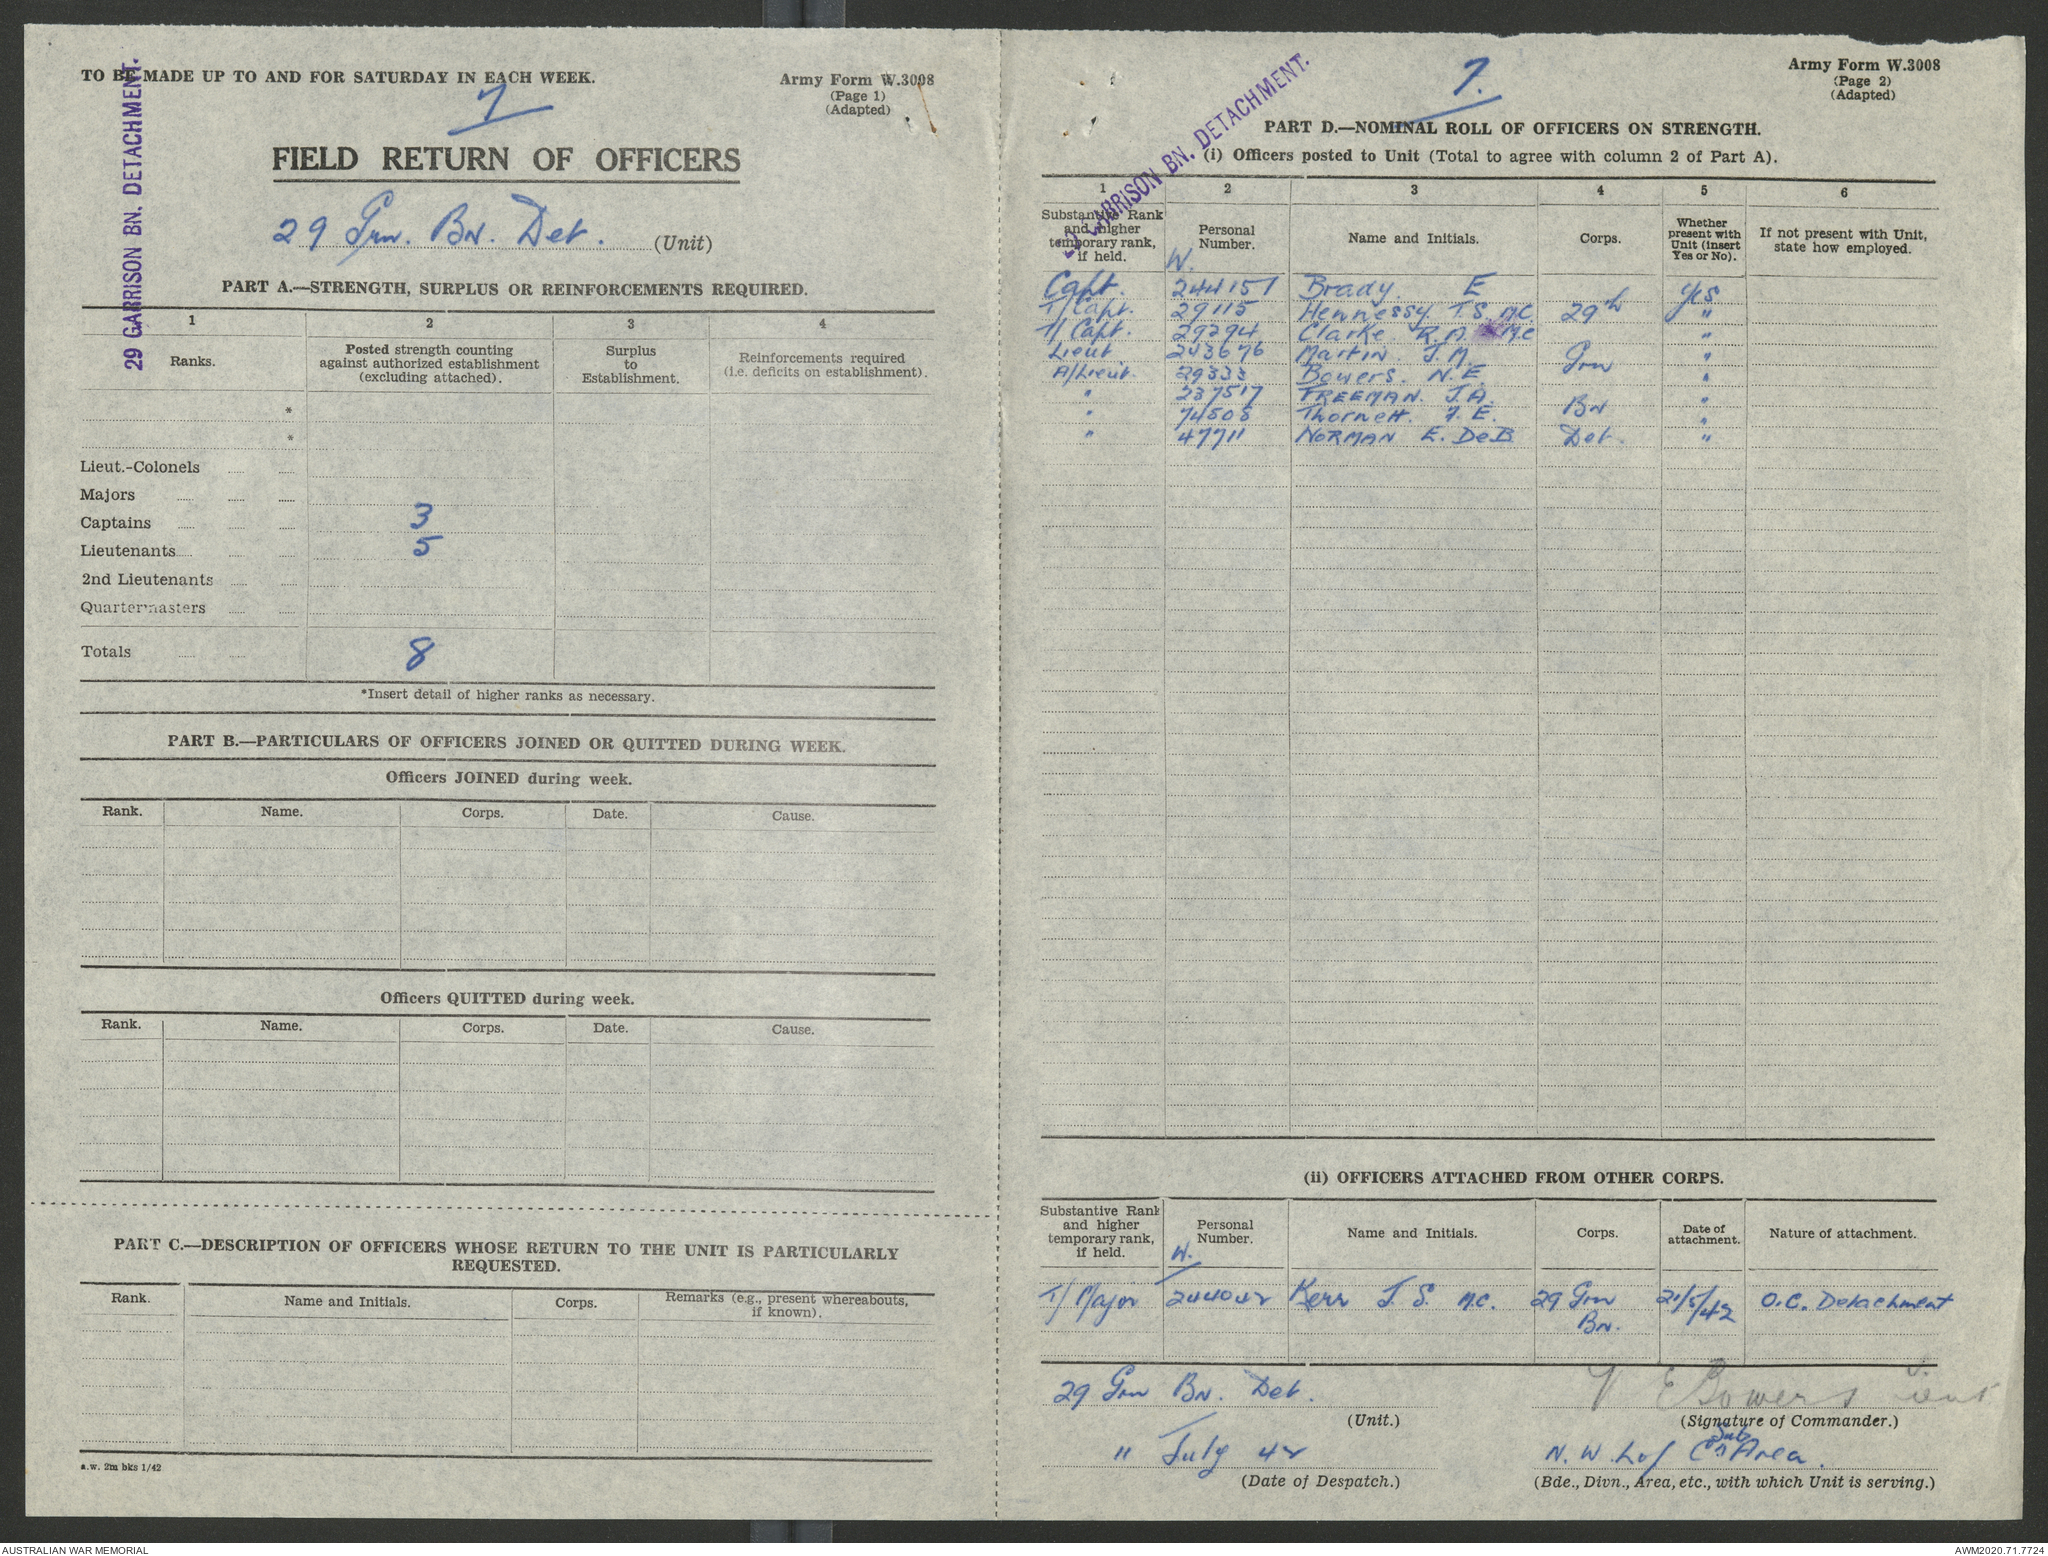 TO BE MADE UP TO AND FOR SATURDAY IN EACH WEEK.
Army Form W.3008
(Page 1)
(Adapted)
7
29 GARRISON BN. DETACHMENT.
FIELD RETURN OF OFFICERS
29 Grn. Bn. Det. (Unit)
PART A.—STRENGTH, SURPLUS OR REINFORCEMENTS REQUIRED.
1 2 3 4
Ranks. Posted strength counting against authorized establishment (excluding attached). Surplus to Establishment. Reinforcements required (i.e. deficits on establishment).
*
*
Lieut.-Colonels
Majors
Captains 3
Lieutenants 5
2nd Lieutenants
Quartermasters
Totals 8
*Insert detail of higher ranks as necessary.
PART B.—PARTICULARS OF OFFICERS JOINED OR QUITTED DURING WEEK.
Officers JOINED during week.
Rank. Name. Corps. Date. Cause.
Officers QUITTED during week.
Rank. Name. Corps. Date. Cause.
PART C.—DESCRIPTION OF OFFICERS WHOSE RETURN TO THE UNIT IS PARTICULARLY
REQUESTED.
Rank. Name and Initials. Corps. Remarks (e.g., present whereabouts, if known).
a.w. 2m bks 1/42
Army Form W.3008
(Page 2)
(Adapted)
7.
29 GARRISON BN. DETACHMENT.
PART D.—NOMINAL ROLL OF OFFICERS ON STRENGTH.
(i) Officers posted to Unit (Total to agree with column 2 of Part A).
1 2 3 4 5 6
Substantive Rank and higher temporary rank, if held. Personal Number. Name and Initials. Corps. Whether present with Unit (insert Yes or No). If not present with Unit, state how employed.
W.
Capt. 244157 Brady. E Yes
T/Capt. 29115 Hennessy T.S. M.C. 29th "
T/Capt. 29294 Clarke R.M. M.C "
Lieut. 243676 Martin J.M. Grn "
A/Lieut. 29333 Bowers. N.E. "
" 237517 FREEMAN. J.A. "
" 74505 Thornett. F.E. Bn "
" 47711 NORMAN E. DeB Det. "
(ii) OFFICERS ATTACHED FROM OTHER CORPS.
Substantive Rank and higher temporary rank, if held. Personal Number. Name and Initials. Corps. Date of attachment. Nature of attachment.
W.
T/Major 244042 Kerr J.S. M.C. 29 Grn Bn. 21/5/42 O.C. Detachment
29 Grn Bn. Det. N E Bowers Lieut
(Unit.) (Signature of Commander.)
11 July 42 N.W. L of C Sub Area.
(Date of Despatch.) (Bde., Divn., Area, etc., with which Unit is serving.)
AUSTRALIAN WAR MEMORIAL
AWM2020.71.7724